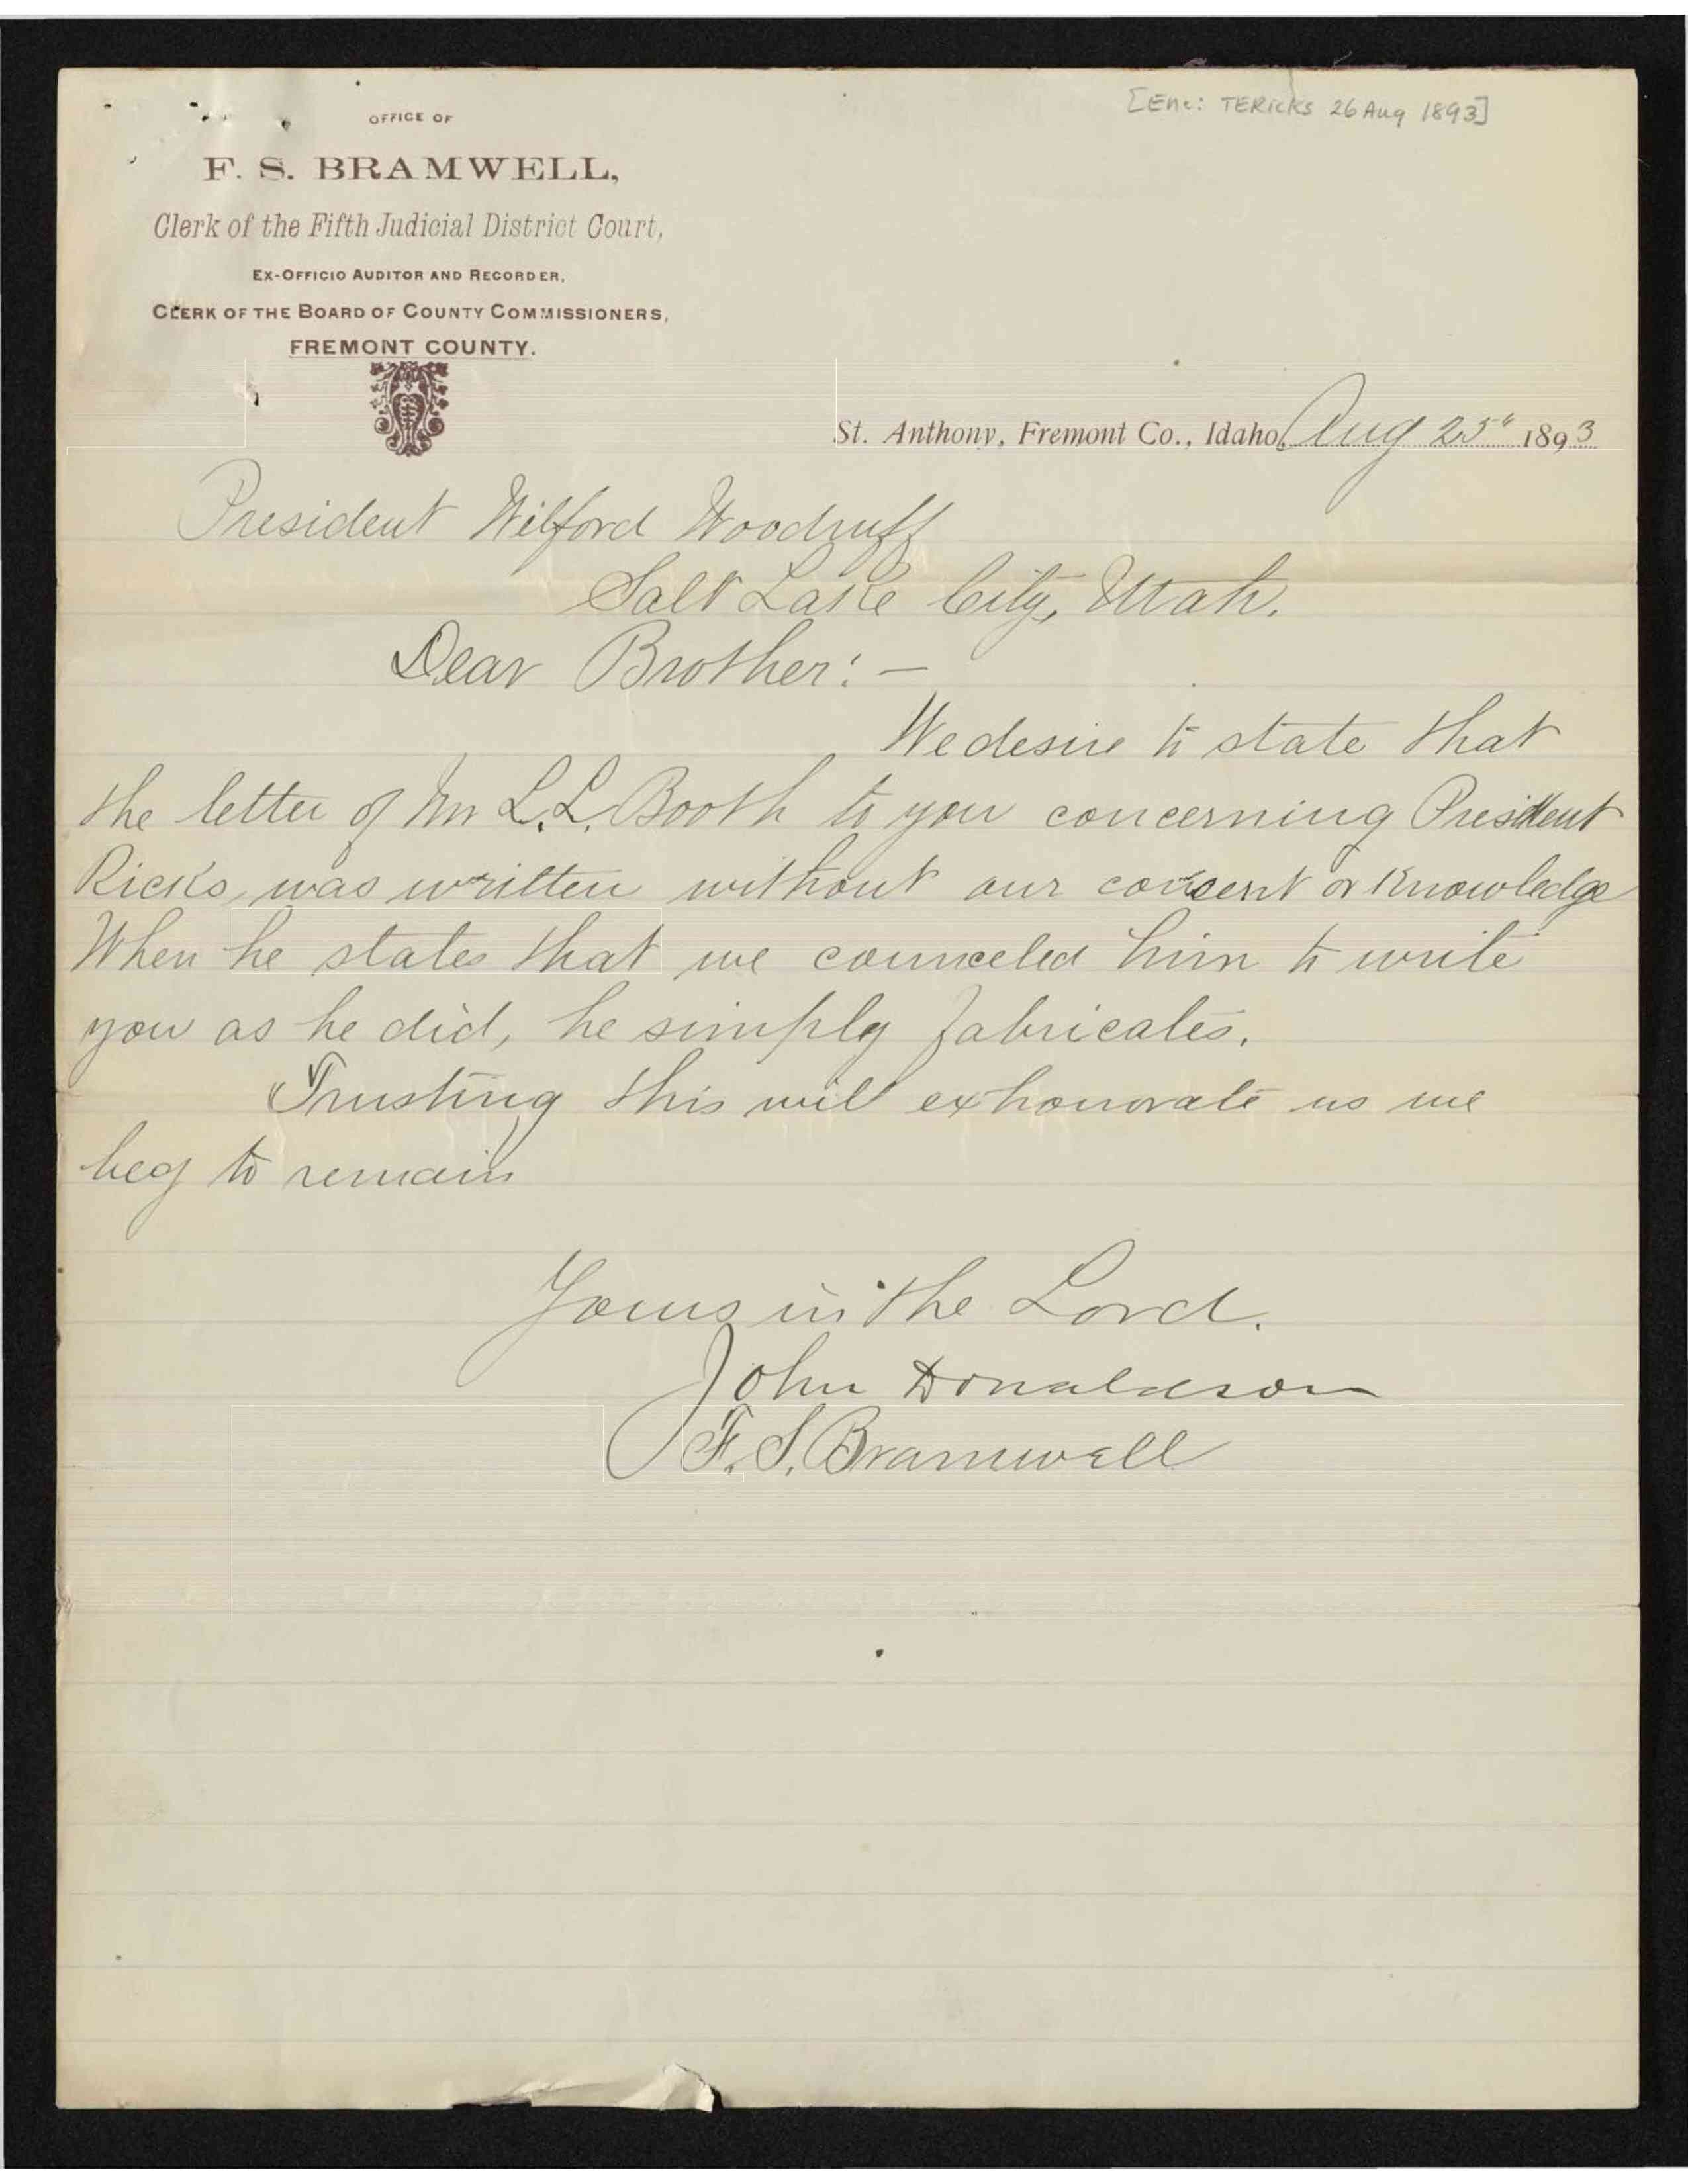 [Enc: TERicks 26 Aug 1893]
OFFICE OF
F. S. BRAMWELL,
Clerk of the Fifth Judicial District Court,
EX-OFFICIO AUDITOR AND RECORDER,
CLERK OF THE BOARD OF COUNTY COMMISSIONERS,
FREMONT COUNTY.
St. Anthony, Fremont Co., Idaho, Aug 25" 1893
President Wilford Woodruff
Salt Lake City, Utah.
Dear Brother:—
We desire to state that
the letter of Mr L.L. Booth to you concerning President
Ricks, was written without our consent or Knowledge
When he states that we counceled him to write
you as he did, he simply fabricates.
Trusting this will exhonorate us we
beg to remain
Yours in the Lord.
John Donaldson
F. S. Bramwell